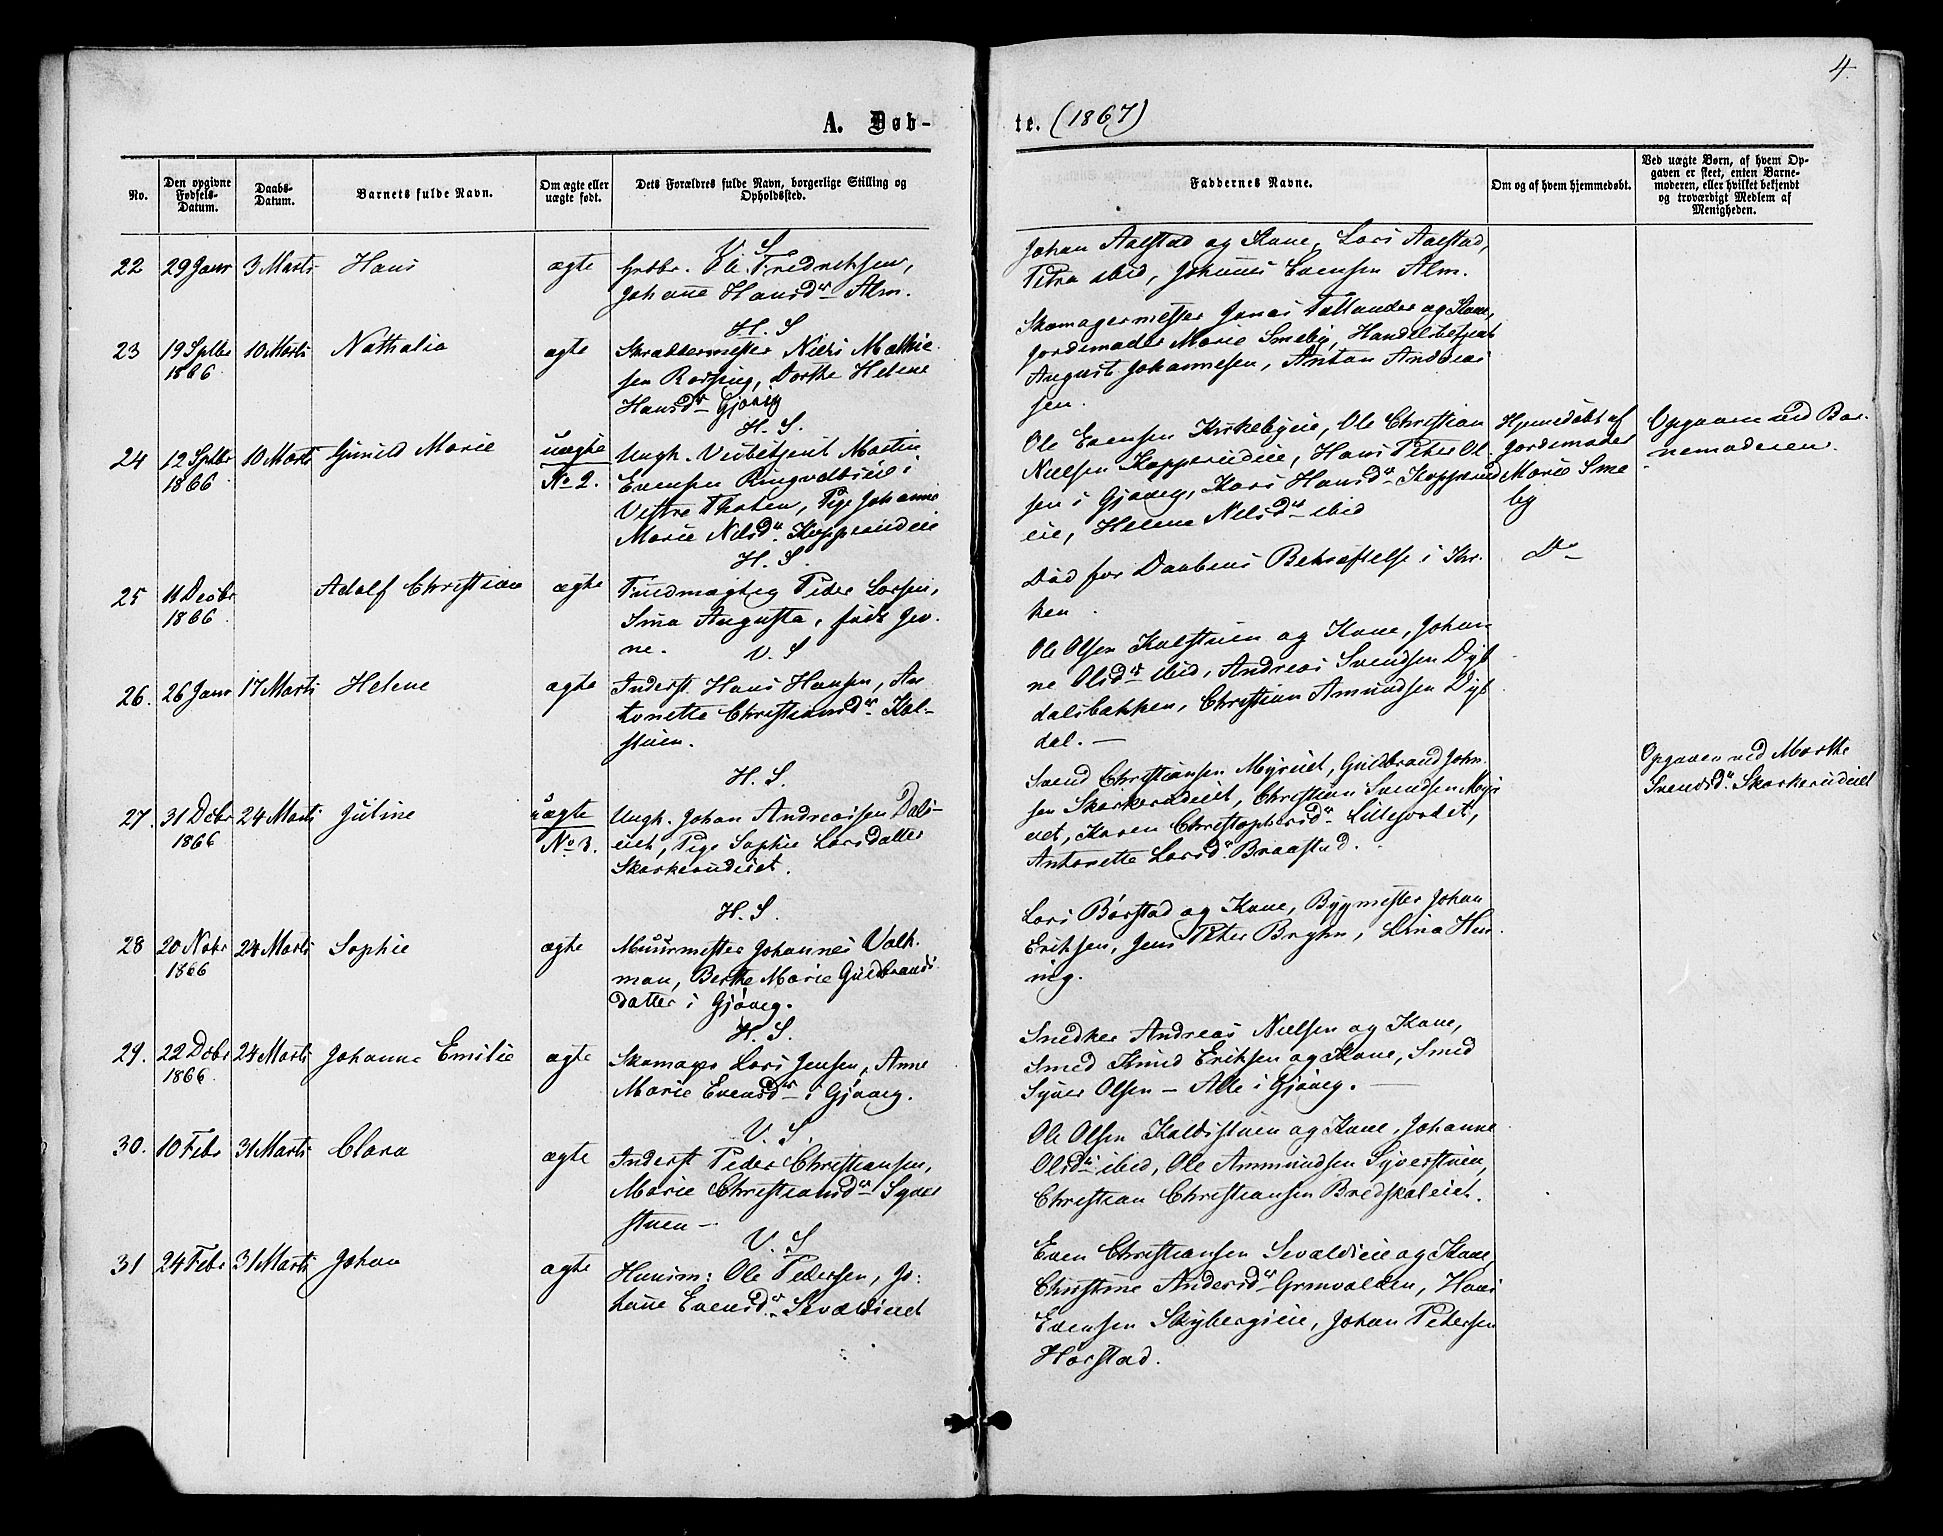 4.
A. Døb-
te. (1867)
No.
Den opgivne
Fødsels-
Datum.
Daabs-
Datum.
Barnets fulde Navn.
Om ægte eller
uægte født.
Dets Forældres fulde Navn, borgerlige Stilling og
Opholdssted.
Faddernes Navne.
Om og af hvem hjemmedøbt.
Ved uægte Børn, af hvem Op-
gaven er skeet, enten Barne-
moderen, eller hvilket bekjendt
og troværdigt Medlem af
Menigheden.
V. S
22 29 Janr 3 Marts Hans ægte Fredriksen,
Johanne Hansdr Alm.
Johan Aalstad og Kone, Lars Aalstad,
Petra ibid, Johannes Evensen Alm.
H. S
23 19 Sptbr 10 Marts Nathalia ægte Skræddermester Niels Mathie
1866 sen Røising, Dorthe Helene
Hansdr Gjøvig
Skomagermester Jonas Tallander og Kone,
Jordemoder Marie Smeby, Handelsbetjent
August Johannesen, Anton Andreas
sen.
H. S.
24 12 Sptbr 10 Marts Gunild Marie uægte Ungk. Martin
1866 No 2. Evensen Ringvoldseie i
Vestre Thoten, Pige Johanne
Marie Nilsdr Kopperudeie
Ole Evensen Kirkebyeie, Ole Christian
Nielsen Kopperudeie, Hans Peter Ol-
sen i Gjøveg, Kari Hansdr Kopperud
eie, Helene Nilsdr ibid
Hjemedøbt af
Jordemoder
Marie Sme
by
Opgaven ved Bar-
nemoderen.
H. S.
25 11 Decbr Adolf Christian ægte Fuldmægtig Peder Larsen,
1866. Sina Augusta, født Jev-
ne.
Død før Daabens Bekræftelse i Kir-
ken.
Do
V. S
26. 26 Janr 17 Marts Helene ægte Inderst Hans Hansen, An
tonette Christiansdr Kal-
stuen.
Ole Olsen Kalstuen og Kone, Johan
ne Olsdr ibid, Andreas Svendsen Dyb
dalsbakken, Christian Amundsen Dyb
dal. —
H. S.
27. 31 Dcbr 24 Marts Juline uægte Ungk. Johan Andreassen Dals-
1866 No 3. eiet, Pige Sophie Larsdatter
Skarkerudeiet.
Svend Christiansen Myreiet, Guldbrand John-
sen Skarkerudeiet, Christian Svendsen Myr
eiet, Karen Christophersdr Lillejordet,
Antonette Larsdr Braastad.
Opgaven ved Marthe
Svendsdr Skarkerudeiet
H. S.
28 20 Nobr 24 Marts Sophie ægte Muurmester Johannes Valk-
1866 man, Berthe Marie Guldbrands
datter i Gjøveg.
Lars Børstad og Kone, Bygmester Johan
Eriksen, Jens Peter Bryhn, Lina Hen
nig.
H. S.
29. 22 Dcbr 24 Marts Johanne Emilie ægte Skomagr Lars Jensen, Anne
1866. Marie Evensdr i Gjøveg.
Snedker Andreas Nielsen og Kone,
Smed Knud Eriksen og Kone, Smed
Syver Olsen — Alle i Gjøveg. —
V. S.
30. 10 Febr 31 Marts Clara ægte Inderst Peder Christiansen,
Marie Christiansdr Syver
stuen —
Ole Olsen Kaldsstuen og Kone, Johanne
Olsdr ibid, Ole Ammundsen Syverstuen,
Christian Christiansen Bredskaleiet.
V. S
31 24 Febr 31 Marts Johan ægte Huusm: Ole Pedersen, Jo-
hane Evensdr Sevaldseiet
Even Christiansen Sevaldseie og Kone,
Christine Andersdr Grinvolden, Hans
Evensen Skybergseie, Johan Petersen
Hørstad.